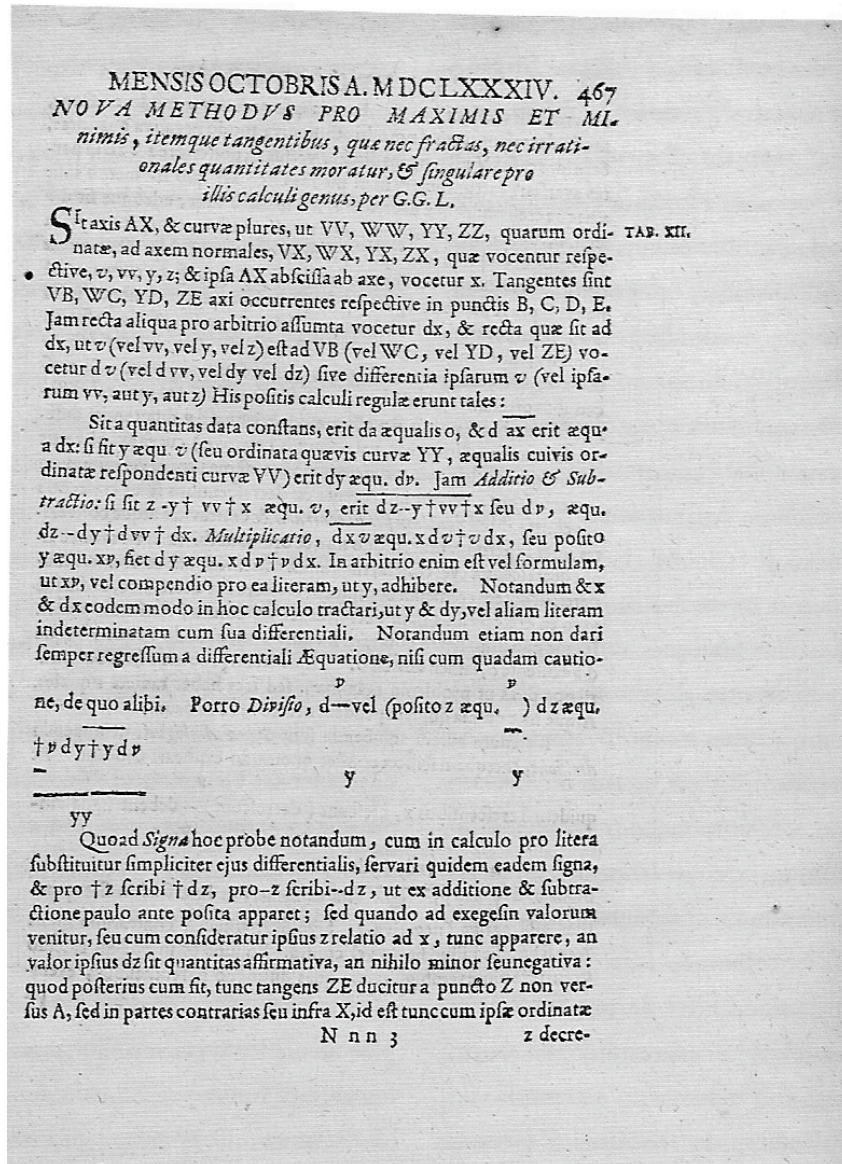 MENSIS OCTOBRIS A. M DCLXXXIV. 467
NOVA METHODVS PRO MAXIMIS ET MI-
nimis, itemque tangentibus, quæ nec fractas, nec irrati-
onales quantitates moratur, & ſingulare pro
illis calculi genus, per G.G. L.
SIt axis AX, & curvæ plures, ut VV, WW, YY, ZZ, quarum ordi- TAB. XII.
natæ, ad axem normales, VX, WX, YX, ZX, quæ vocentur reſpe-
ctive, v, vv, y, z; & ipſa AX abſciſſa ab axe, vocetur x. Tangentes ſint
VB, WC, YD, ZE axi occurrentes reſpective in punctis B, C, D, E.
Jam recta aliqua pro arbitrio aſſumta vocetur dx, & recta quæ ſit ad
dx, ut v (vel vv, vel y, vel z) eſt ad VB (vel WC, vel YD, vel ZE) vo-
cetur d v (vel d vv, vel dy vel dz) ſive differentia ipſarum v (vel ipſa-
rum vv, aut y, aut z) His poſitis calculi regulæ erunt tales:
Sit a quantitas data conſtans, erit da æqualis 0, & d ax erit æqu.
a dx: ſi ſit y æqu. v (ſeu ordinata quævis curvæ YY, æqualis cuivis or-
dinatæ reſpondenti curvæ VV) erit dy æqu. dv. Jam Additio & Sub-
tractio: ſi ſit z -y† vv† x æqu. v, erit dz--y†vv†x ſeu dv, æqu.
dz--dy†dvv† dx. Multiplicatio, dxv æqu. x dv†v dx, ſeu poſito
y æqu. xv, fiet dy æqu. x dv†v dx. In arbitrio enim eſt vel formulam,
ut xv, vel compendio pro ea literam, ut y, adhibere. Notandum & x
& dx eodem modo in hoc calculo tractari, ut y & dy, vel aliam literam
indeterminatam cum ſua differentiali. Notandum etiam non dari
ſemper regreſſum a differentiali Æquatione, niſi cum quadam cautio-
v v
ne, de quo alibi. Porro Diviſio, d—vel (poſito z æqu. ) dz æqu.
†v dy†y dv
y y
yy
Quoad Signa hoc probe notandum, cum in calculo pro litera
ſubſtituitur ſimpliciter ejus differentialis, ſervari quidem eadem ſigna,
& pro †z ſcribi †dz, pro-z ſcribi--dz, ut ex additione & ſubtra-
ctione paulo ante poſita apparet; ſed quando ad exegeſin valorum
venitur, ſeu cum conſideratur ipſius z relatio ad x, tunc apparere, an
valor ipſius dz ſit quantitas affirmativa, an nihilo minor ſeu negativa:
quod poſterius cum fit, tunc tangens ZE ducitur a puncto Z non ver-
ſus A, ſed in partes contrarias ſeu infra X, id eſt tunc cum ipſæ ordinatæ
N n n 3 z decre-